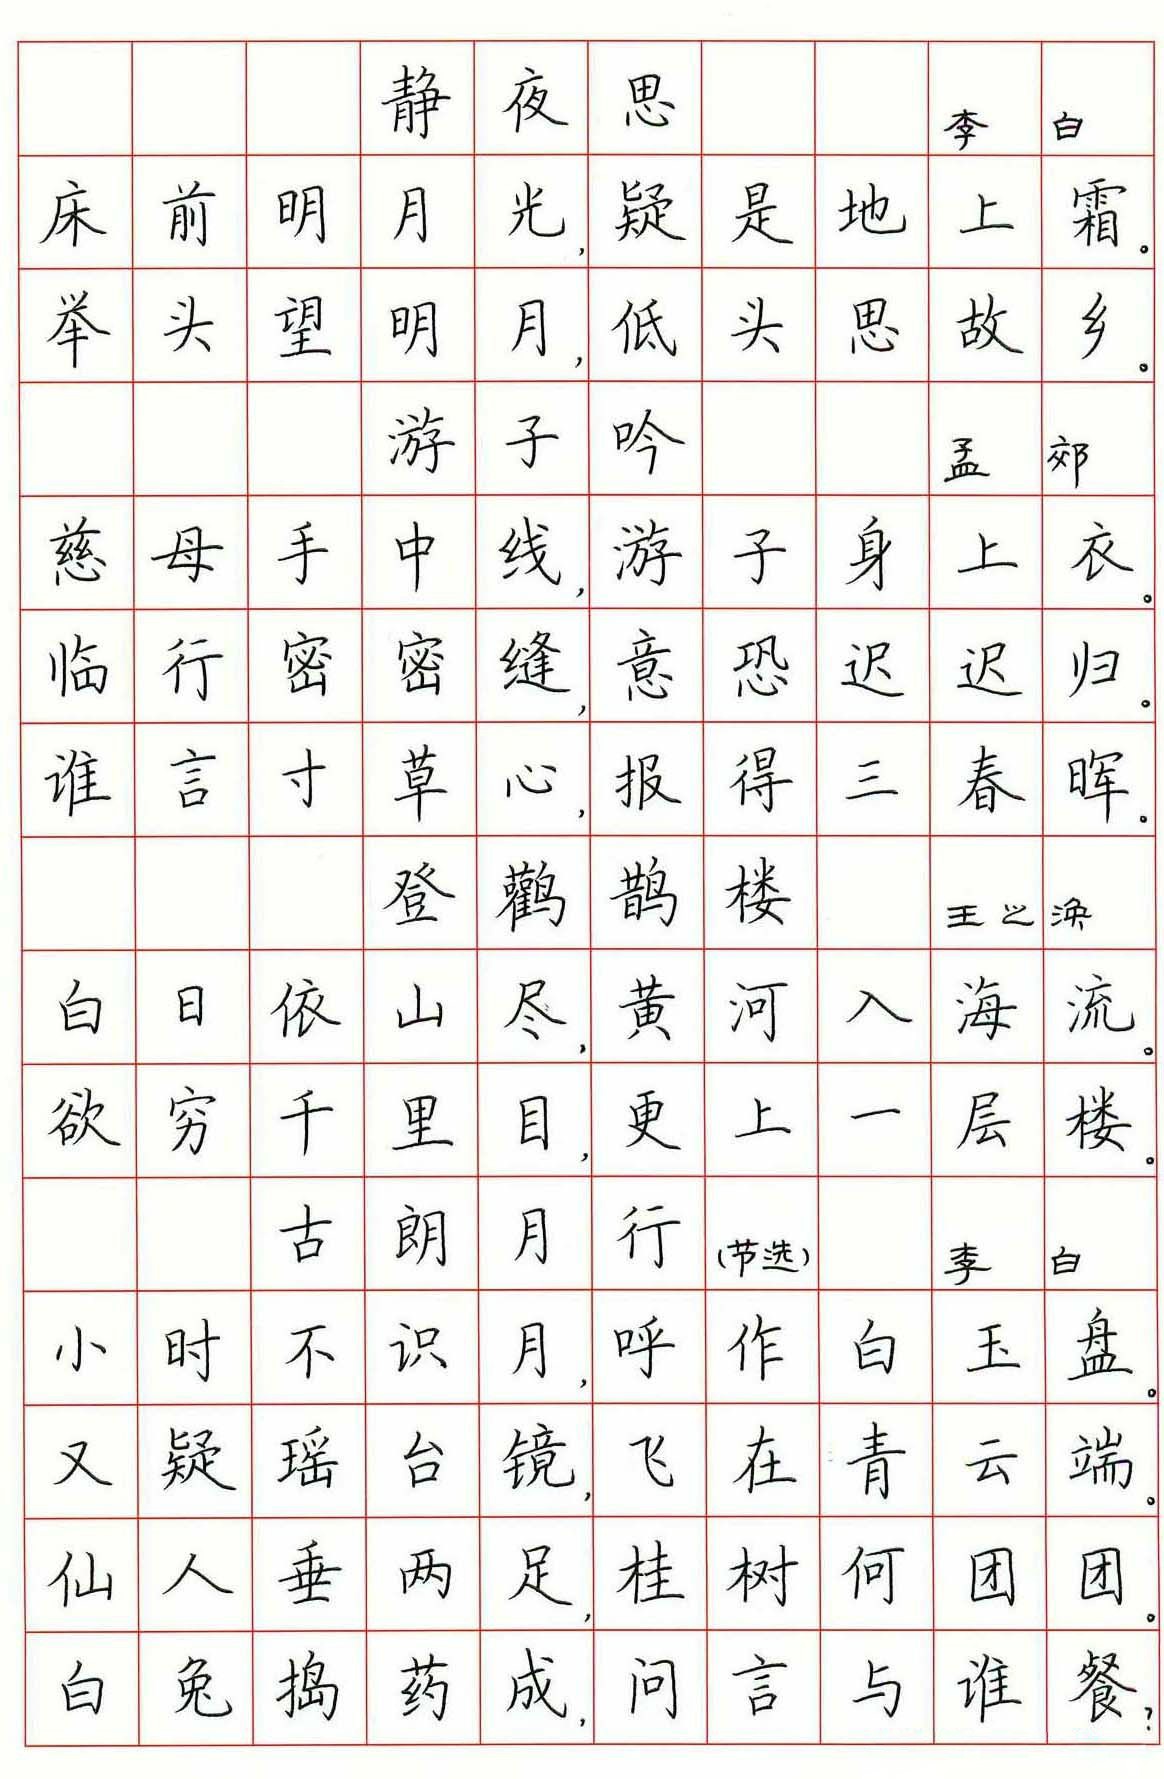 静夜思 李白
床前明月光,疑是地上霜。
举头望明月,低头思故乡。
游子吟 孟郊
慈母手中线,游子身上衣。
临行密密缝,意恐迟迟归。
谁言寸草心,报得三春晖。
登鹳鹊楼 王之涣
白日依山尽,黄河入海流。
欲穷千里目,更上一层楼。
古朗月行(节选) 李白
小时不识月,呼作白玉盘。
又疑瑶台镜,飞在青云端。
仙人垂两足,桂树何团团。
白兔捣药成,问言与谁餐?